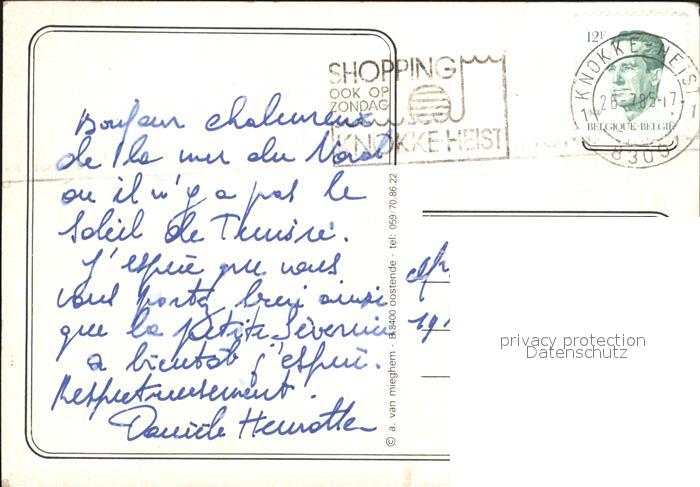 SHOPPING
OOK OP
ZONDAG
KNOKKE-HEIST
KNOKKE-HEIST
8300
12F
BELGIQUE-BELGIË
Bonjour chaleureux
de la mer du Nord
ou il n'y a pas le
soleil de Tunisie.
J'espère que vous
vous portez bien ainsi
que la petite Séverine
a bientôt j'espère.
Respectueusement.
Danièle Henrotte
© a. van mieghem - B-8400 oostende - tel: 059/70.86.22
privacy protection
Datenschutz